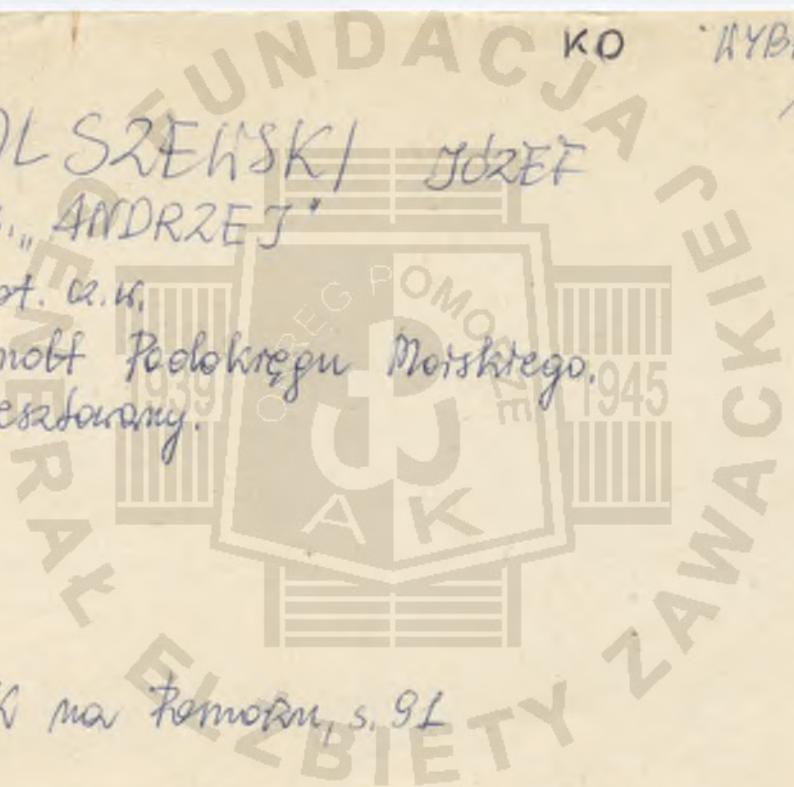 KO WYB
OLSZEWSKI JÓZEF
s. „ANDRZEJ"
pt. a.w.
mobf Podokręgu Morskiego.
esztowany.
K na Pomorzu, s. 91
FUNDACJA
GENERAŁ ELŻBIETY ZAWACKIEJ
OKRĘG POMORZE
1939 1945
AK